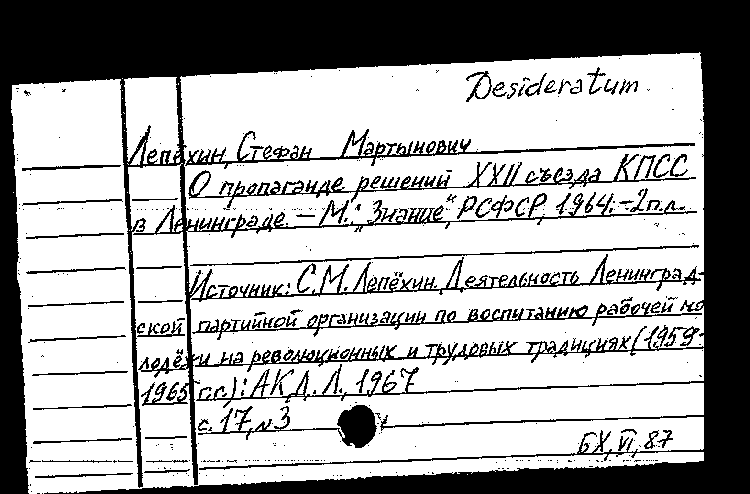 Desideratum
Лепёхин, Стефан Мартынович
О пропаганде решений XXII съезда КПСС
в Ленинграде. – М.: "Знание", РСФСР, 1964. – 2 п.л.
Источник: С.М. Лепёхин. Деятельность Ленинград-
ской партийной организации по воспитанию рабочей мо
лодёжи на революционных и трудовых традициях (1959-
1965 г.г.): АКД. Л., 1967
с. 17, №3
БХ, VI, 87